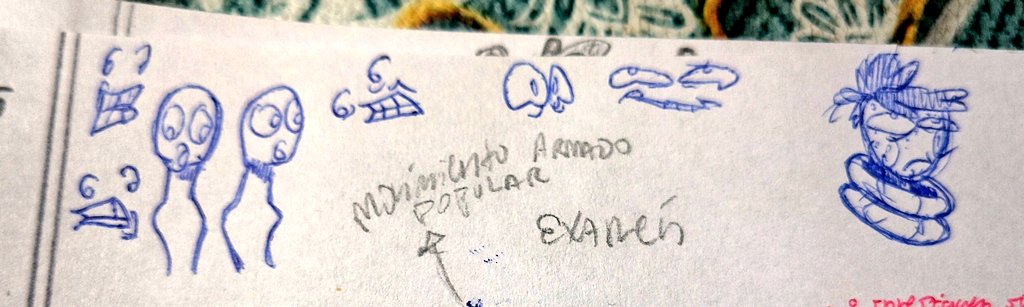 MOVIMIENTO ARMADO
POPULAR
EXAMEN